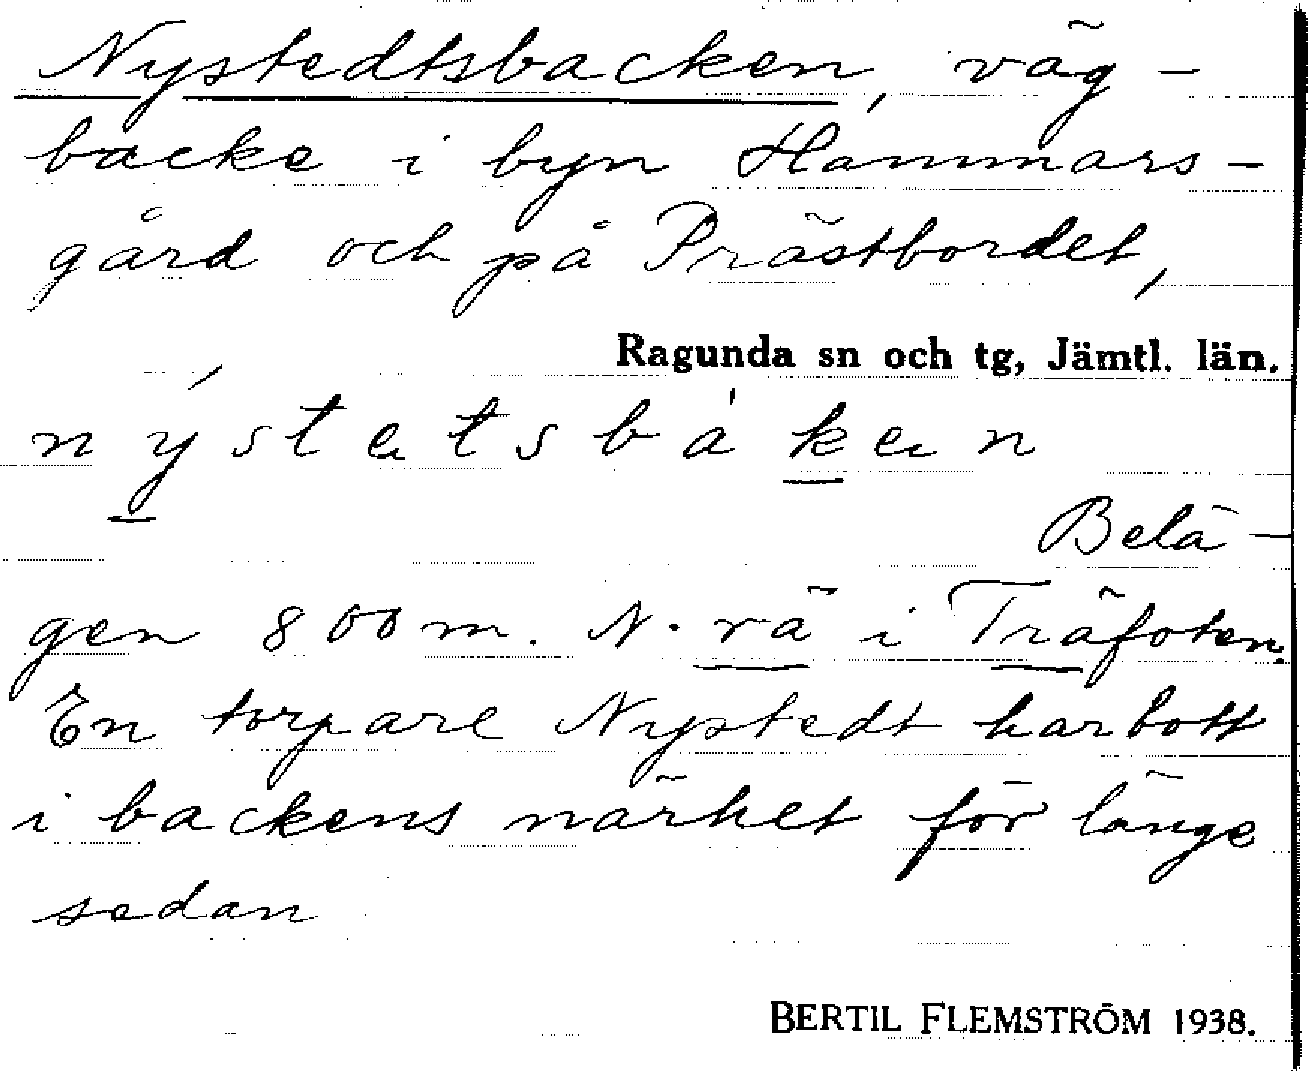 Nystedtsbacken, väg-
backe i byn Hammars-
gård och på Prästbordet,
Ragunda sn och tg, Jämtl. län.
nýstetsbà'ken
Belä-
gen 800 m. N. rä i Träfoten.
En torpare Nystedt har bott
i backens närhet för länge
sedan
BERTIL FLEMSTRÖM 1938.